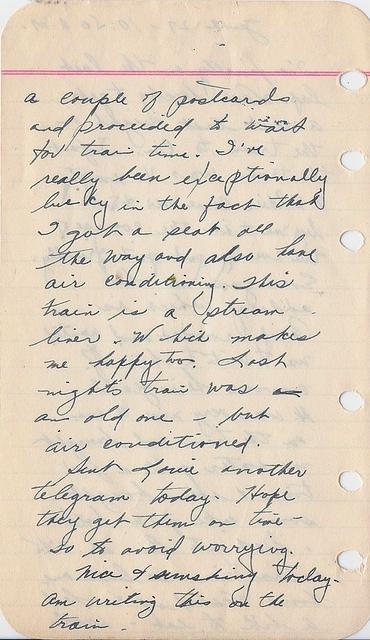 a couple of postcards
and proceeded to wait
for train time. I've
really been exceptionally
lucky in the fact that
I got a seat all
the way and also have
air conditioning. This
train is a stream
liner. Which makes
me happy too. Last
night's train was a
an old one - but
air conditioned.
Sent Louie another
telegram today. Hope
they get them on time -
so to avoid worrying.
Nice & sunshiny today.
Am writing this on the
train.